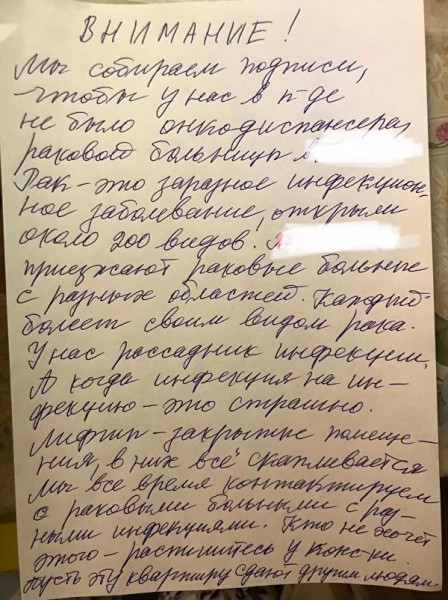 ВНИМАНИЕ!
Мы собираем подписи,
чтобы у нас в п-де
не было онкодиспансера,
раковой больницы в.
Рак – это заразное инфекцион-
ное заболевание, открыли
около 200 видов!
приезжают раковые больные
с разных областей. Каждый
болеет своим видом рака.
У нас рассадник инфекции,
А когда инфекция на ин-
фекцию – это страшно.
Лифты – закрытые помеще-
ния, в них всё скапливается
Мы все время контактируем
с раковыми больными с раз-
ными инфекциями. Кто не хочет
этого – распишитесь у
пусть эту квартиру сдают другим людям